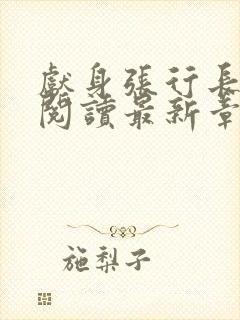 獻身張行長
閱讀最新章
施梨子